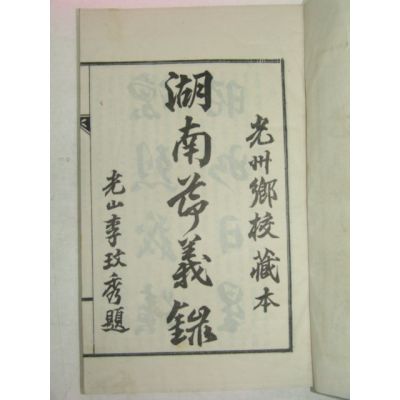 光州鄕校藏本
湖南節義錄
光山李玟秀題